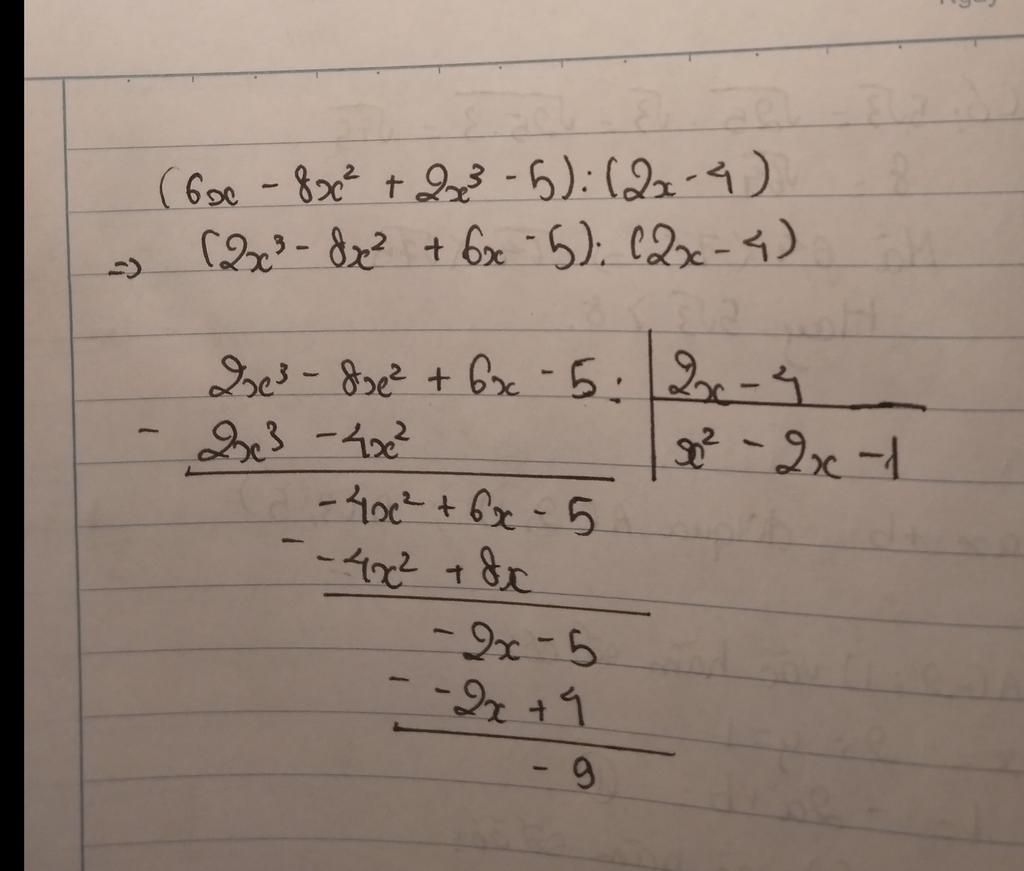 (6x - 8x² + 2x³ - 5) : (2x - 4)
=> (2x³ - 8x² + 6x - 5) : (2x - 4)
2x³ - 8x² + 6x - 5 : | 2x - 4
- 2x³ - 4x² | x² - 2x - 1
-4x² + 6x - 5
- -4x² + 8x
-2x - 5
- -2x + 4
-9